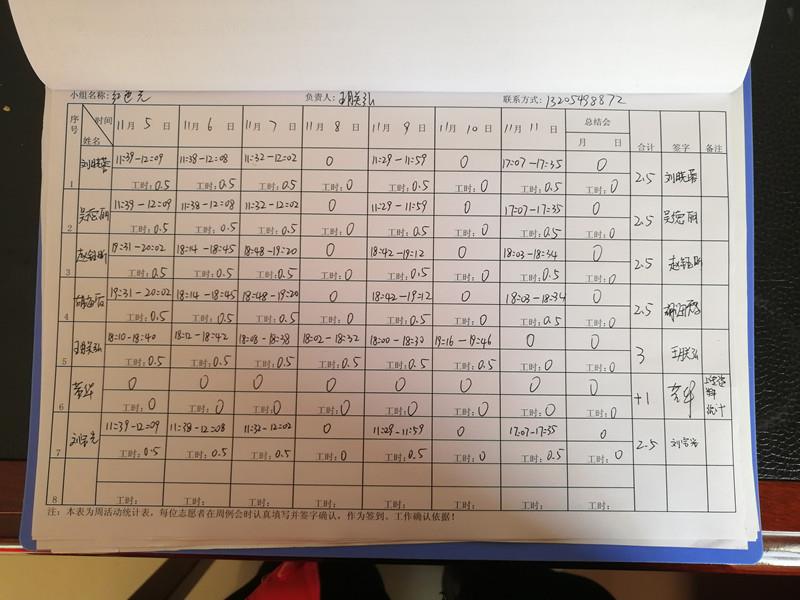 小组名称：红色光 负责人：王联弘 联系方式：13205498872
序号 时间 姓名 11月5日 11月6日 11月7日 11月8日 11月9日 11月10日 11月11日 总结会 月 日 合计 签字 备注
1 11:39-12:09 11:38-12:08 11:32-12:02 0 11:29-11:59 0 17:07-17:35 0 2.5
工时：0.5 工时：0.5 工时：0.5 工时：0 工时：0.5 工时：0 工时：0.5 工时：0
2 吴德丽 11:39-12:09 11:38-12:08 11:32-12:02 0 11:29-11:59 0 17:07-17:35 0 2.5 吴德丽
工时：0.5 工时：0.5 工时：0.5 工时：0 工时：0.5 工时：0 工时：0.5 工时：0
3 19:31-20:02 18:14-18:45 18:48-19:20 0 18:42-19:12 0 18:03-18:34 0 2.5
工时：0.5 工时：0.5 工时：0.5 工时：0 工时：0.5 工时：0 工时：0.5 工时：0
4 19:31-20:02 18:14-18:45 18:48-19:20 0 18:42-19:12 0 18:03-18:34 0 2.5
工时：0.5 工时：0.5 工时：0.5 工时：0 工时：0.5 工时：0 工时：0.5 工时：0
5 王联弘 18:10-18:40 18:12-18:42 18:08-18:38 18:02-18:32 18:00-18:30 19:16-19:46 0 0 3 王联弘
工时：0.5 工时：0.5 工时：0.5 工时：0.5 工时：0.5 工时：0.5 工时：0 工时：0
6 0 0 0 0 0 0 0 0 +1 统计
工时：0 工时：0 工时：0 工时：0 工时：0 工时：0 工时：0 工时：0
7 11:39-12:09 11:38-12:08 11:32-12:02 0 11:29-11:59 0 17:07-17:35 0 2.5
工时：0.5 工时：0.5 工时：0.5 工时：0 工时：0.5 工时：0 工时：0.5 工时：0
8 工时： 工时： 工时： 工时： 工时： 工时： 工时： 工时：
注：本表为周活动统计表，每位志愿者在周例会时认真填写并签字确认，作为签到、工作确认依据！